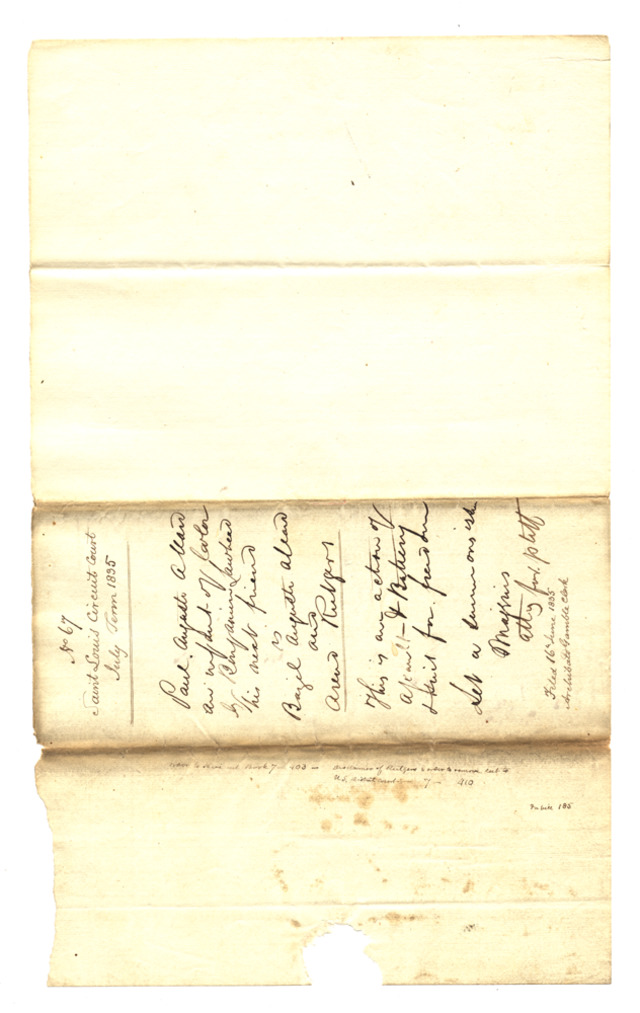 No 67
Saint Louis Circuit Court
July Term 1835
Paul Auguste Alland
an infant of Color
by Benjamin Lawhead
his next friend
vs
Bazel Auguste Alland
and
Arend Rutgers
This is an action of
Assault & Battery
& suit for freedom
Let a summons issue
Maginnis
atty for pltff
Filed 16th June 1835
Archibald Gamble Clerk
Book 7 403 of Rutgers to remove
U.S. 7 410
185